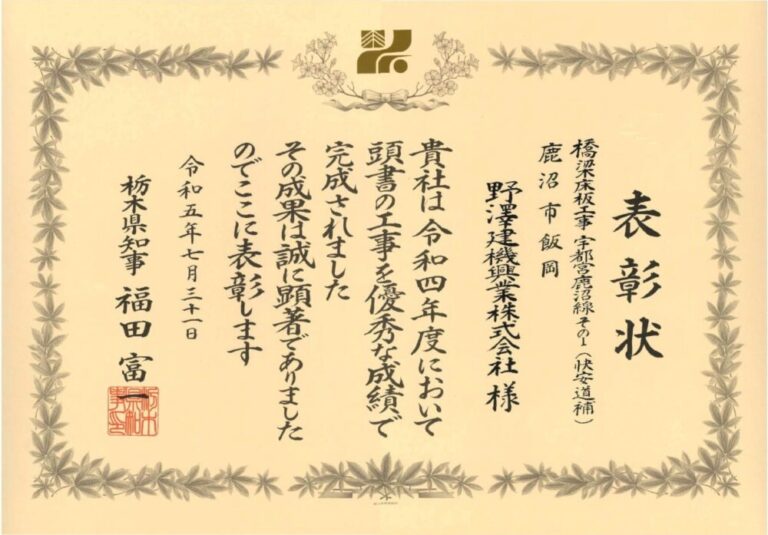 表彰状
橋梁床板工事 宇都宮鹿沼線その1（快安道補）
鹿沼市飯岡
野澤建機興業株式会社 様
貴社は令和四年度において
頭書の工事を優秀な成績で
完成されました
その成果は誠に顕著でありました
のでここに表彰します
令和五年七月三十一日
栃木県知事 福田富一